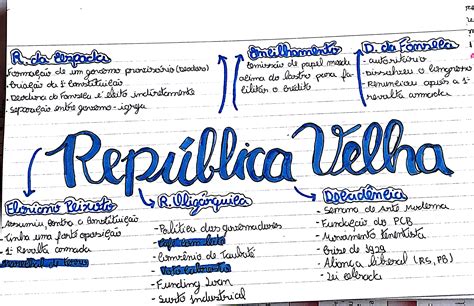 R. da Espada
- Formação de um governo provisório (Deodoro)
- Criação da 1ª constituição
- Deodoro da Fonseca é eleito indiretamente
- separação entre governo - igreja
Encilhamento
emissão de papel moeda
acima do lastro para fa-
cilitar o crédito
D. da Fonseca
- autoritário
- Dissolveu o congresso
- Renunciou após a 1ª
revolta armada
República Velha
Floriano Peixoto
- Assumiu contra a constituição
- tinha uma forte oposição
- 1ª Revolta armada
R. Oligárquica
- Política dos governadores
- Convênio de Taubaté
- Funding Loan
- Surto industrial
Decadência
- Semana de Arte Moderna
- Fundação do PCB
- Movimento tenentista
- Crise de 1929
- Aliança liberal (RS, PB)
- Lei celerada